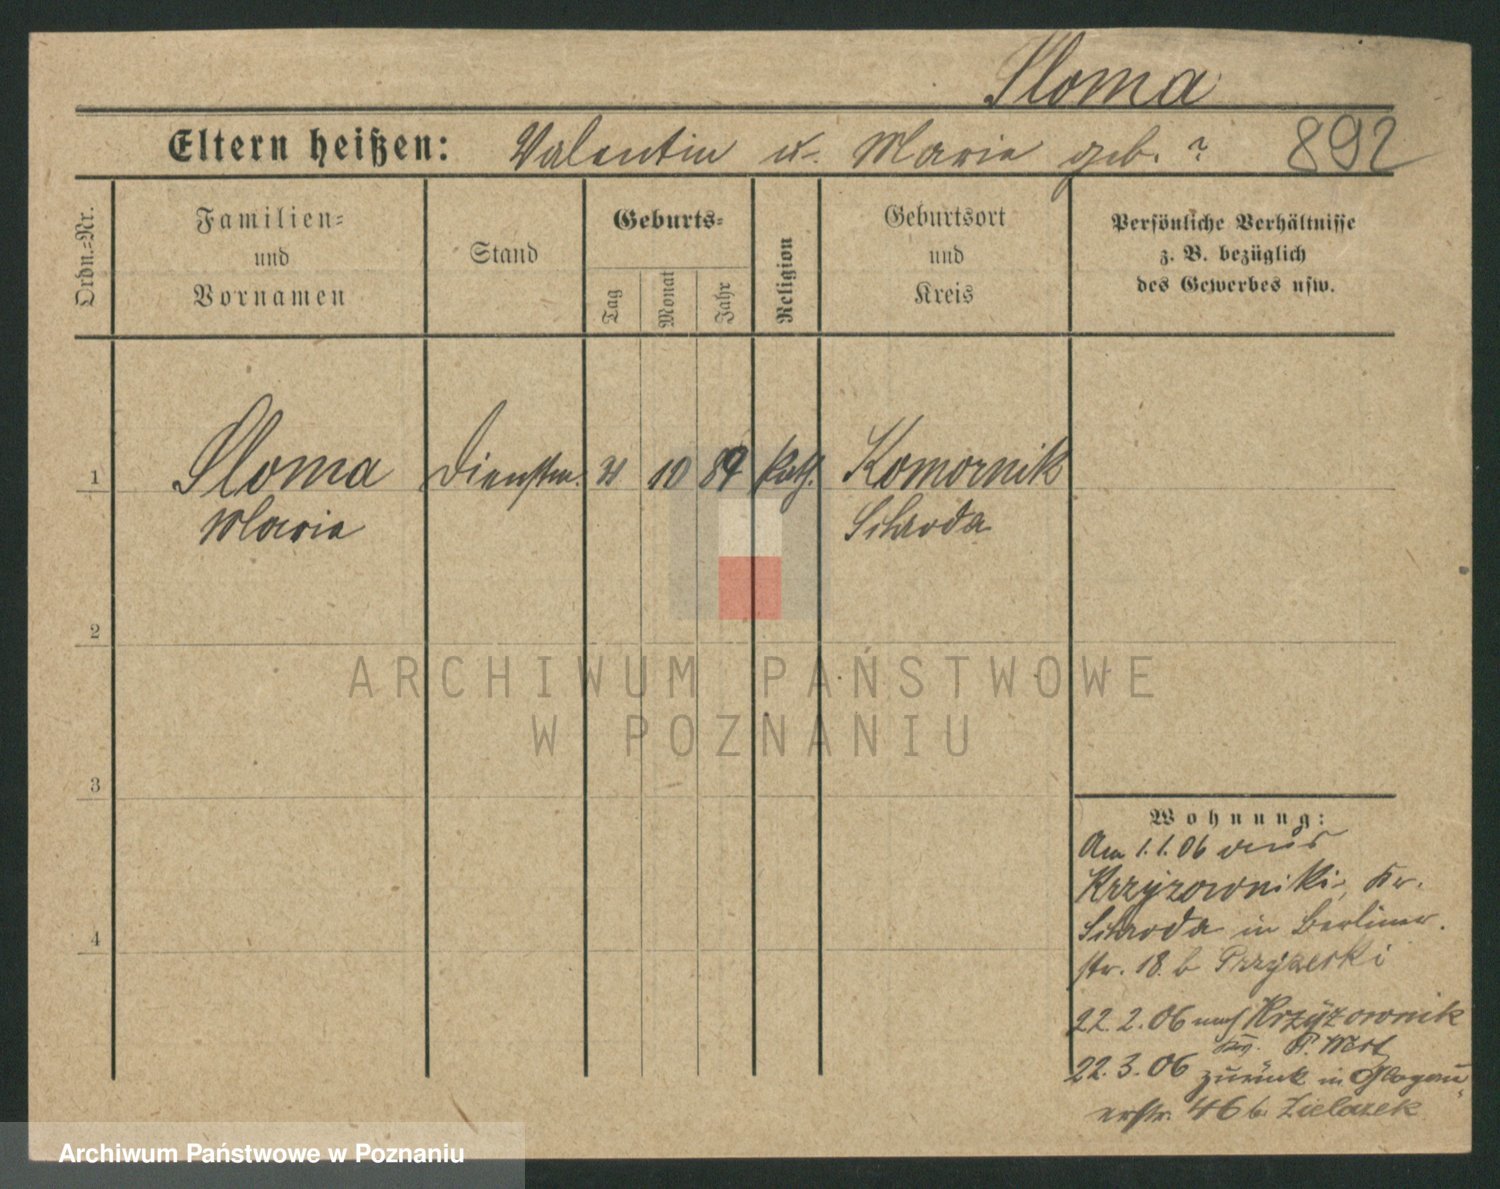 Sloma
Eltern heißen: Valentin u. Maria geb. ? 892
Ordn.=Nr.
Familien=
und
Vornamen
Stand
Geburts=
Tag
Monat
Jahr
Religion
Geburtsort
und
Kreis
Persönliche Verhältnisse
z. B. bezüglich
des Gewerbes usw.
1 Sloma Dienstm. 10 89 kath. Komornik
Maria Schroda
2
3
4
Wohnung:
Am 1.1.06 aus
Krzyzowniki, Kr.
Schroda in Berliner
str. 18. b Przyzerski
22.2.06 nach Krzyzownik
Kr. P. West
22.3.06 zurück in Glogau
erstr. 46 b. Zielazek
ARCHIWUM PAŃSTWOWE
W POZNANIU
Archiwum Państwowe w Poznaniu